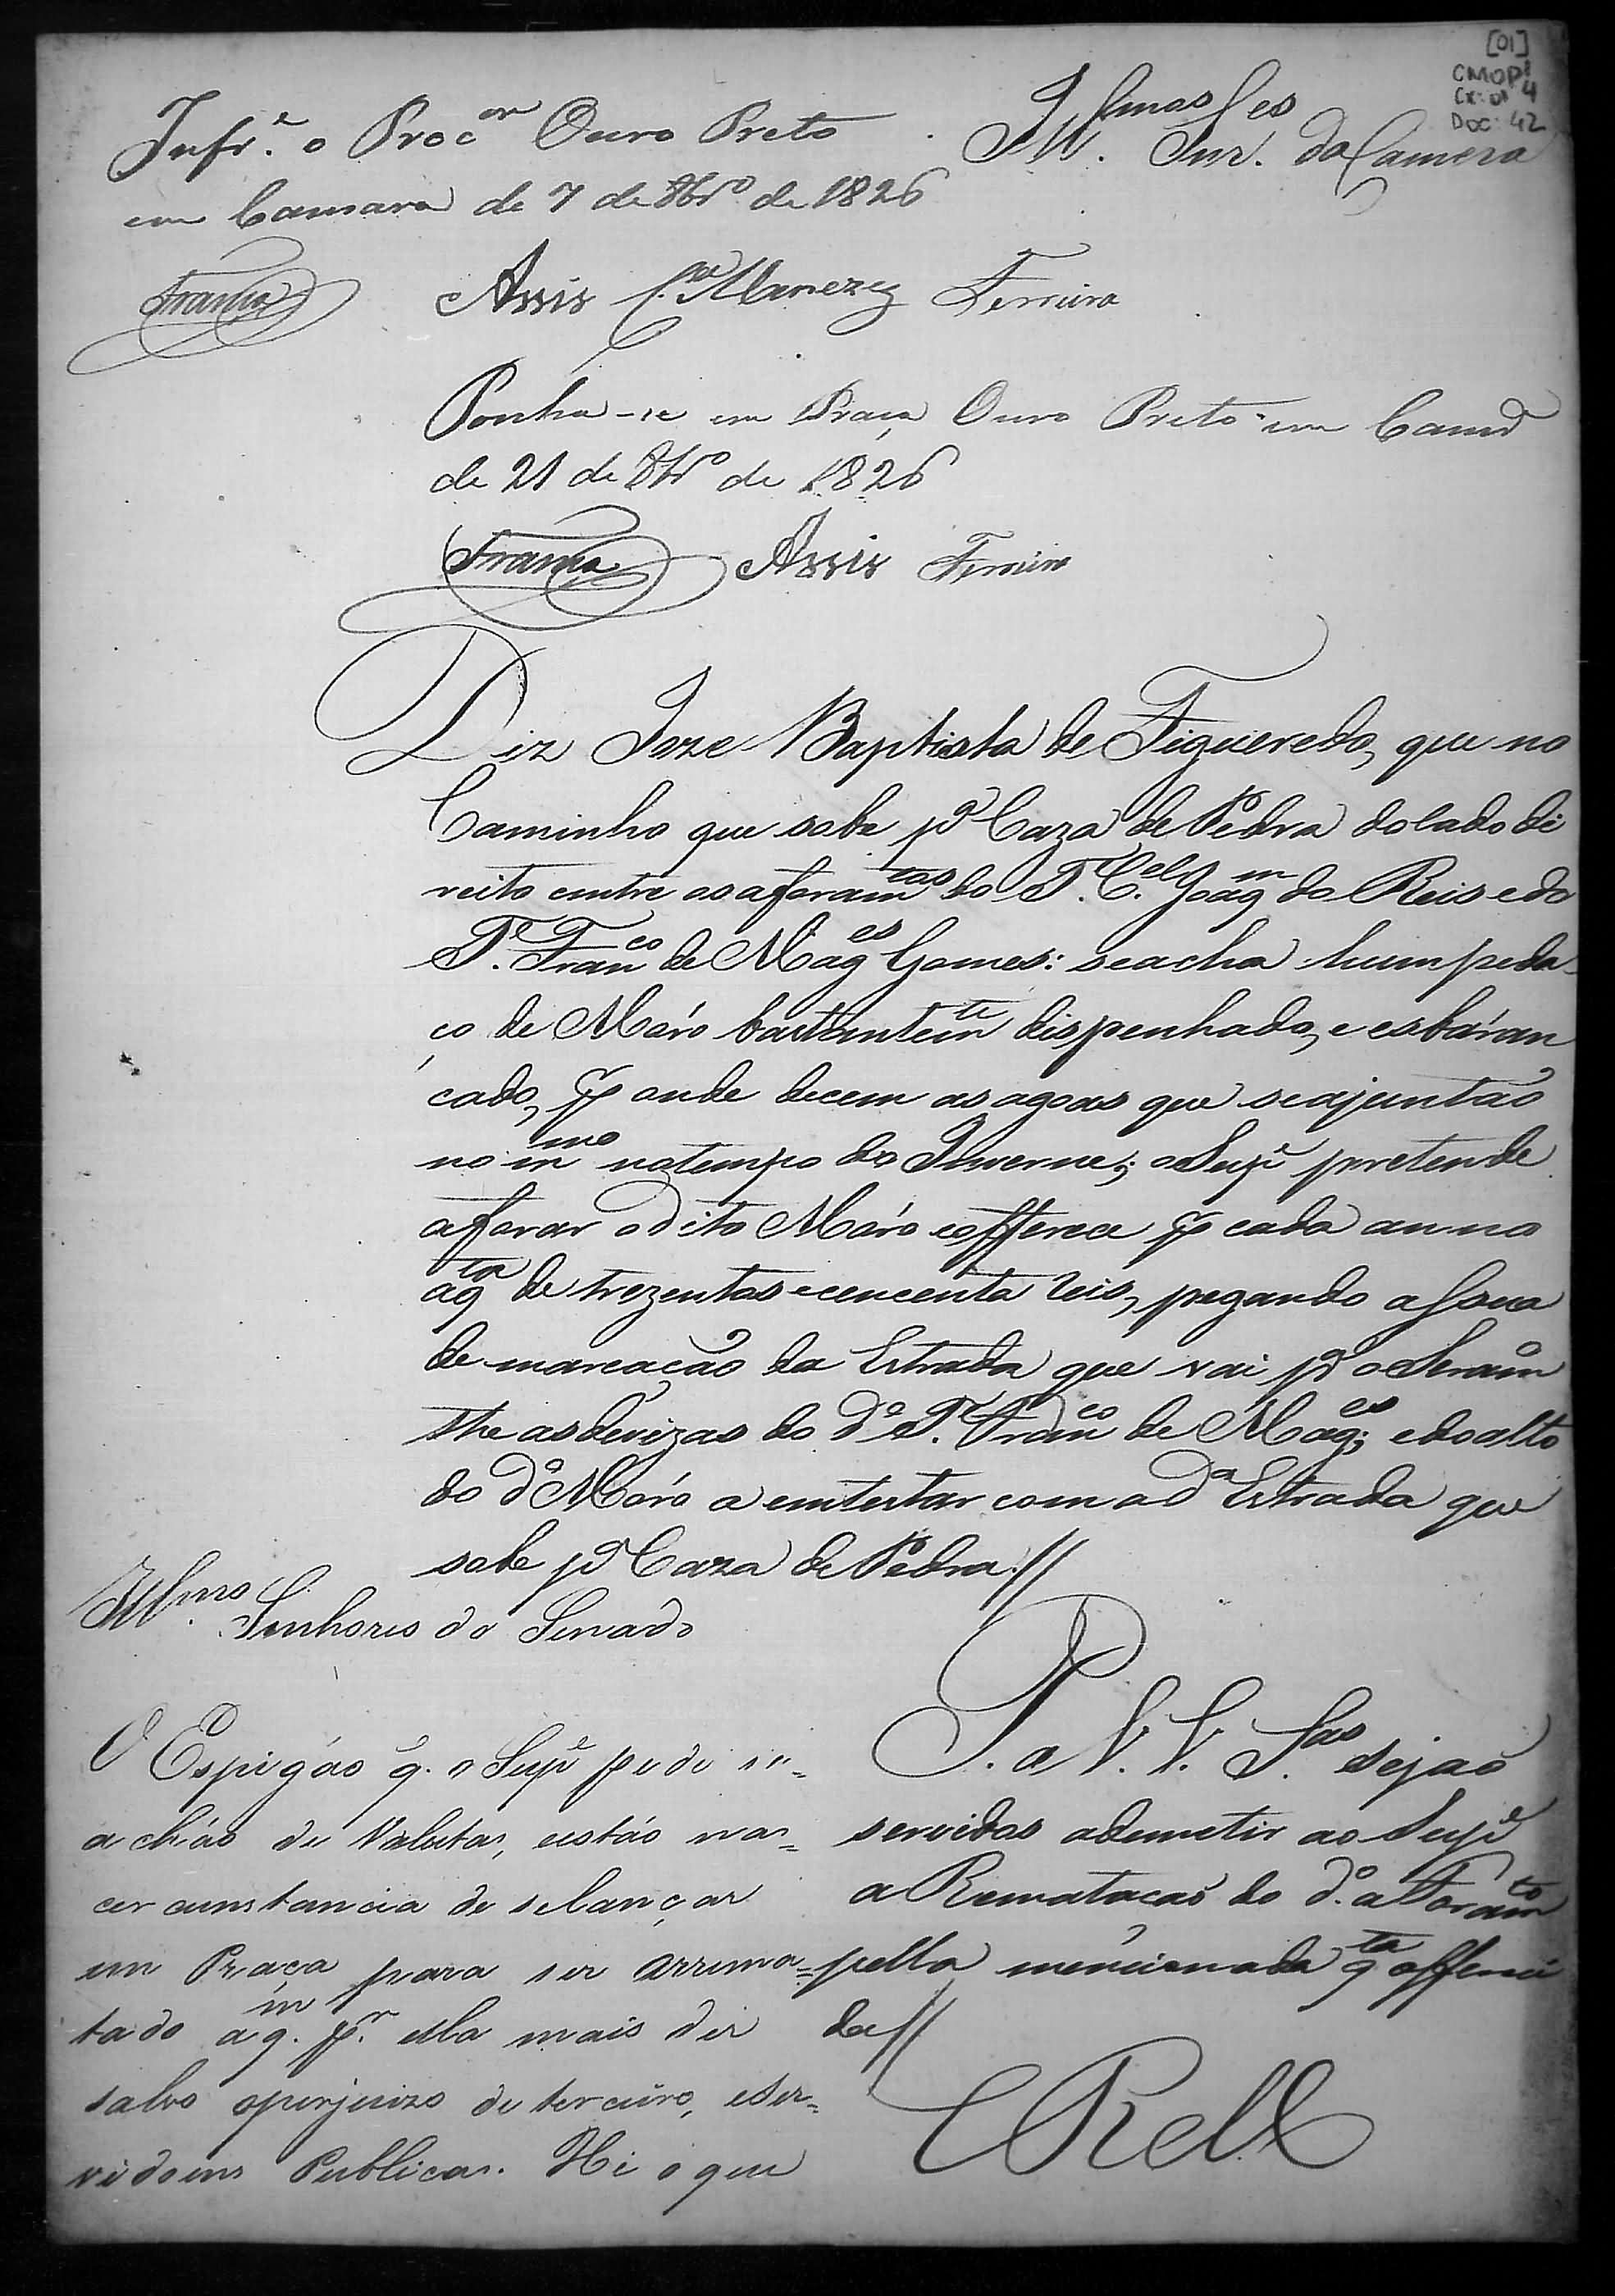 [01]
CMOP
Cx: 01 4
Doc: 42
Illmos Ses
Snr. da Camera
Infr.e o Procor Ouro Preto
em Camara de 7 de 8br.o de 1826
França Assis Menezes Ferreira
Ponha-se em Praça Ouro Preto em Camr.a
de 21 de 8br.o de 1826
França Assis Ferreira
Diz Joze Baptista de Figueredo, que no
Caminho que sobe p.a Caza de Pedra do lado di
reito entre os aforamtos do T.e C.el Joaqm do Reis e do
P.e Franco de Mages Gomes: se acha hum peda-
ço de Móro bastantemte dispenhado, e esbáran
cado, p onde decem as agoas que se ajuntão
no mmo no tempo do Inverne; o Supe pretende
aforar o dito Móro e offerece p cada anno
a qta de trezentos e cencenta reis, pegando a sua
demarcação da Estrada que vai p.a o Serami
the as devizas do D.o P.e Franco de Mages; e do alto
do D.o Móro a entestar com a D.a Estrada que
sobe p.a Caza de Pedra //
P. a V. V. S.as sejão
servidos ademetir ao Supe
a Rematacão do d.o aForamto
pella mencionada qta offereci
da //
E R M
Illmos Senhores do Senado
O Espigão q. o Supe pede se=
achão de Valuta, estão nas=
cercunstancia de se lançar
em Praça para ser arrema=
tado a qm p.r ella mais der
salvo o perjuizo de terceiro, e ser=
vidoins Publicas. He o que